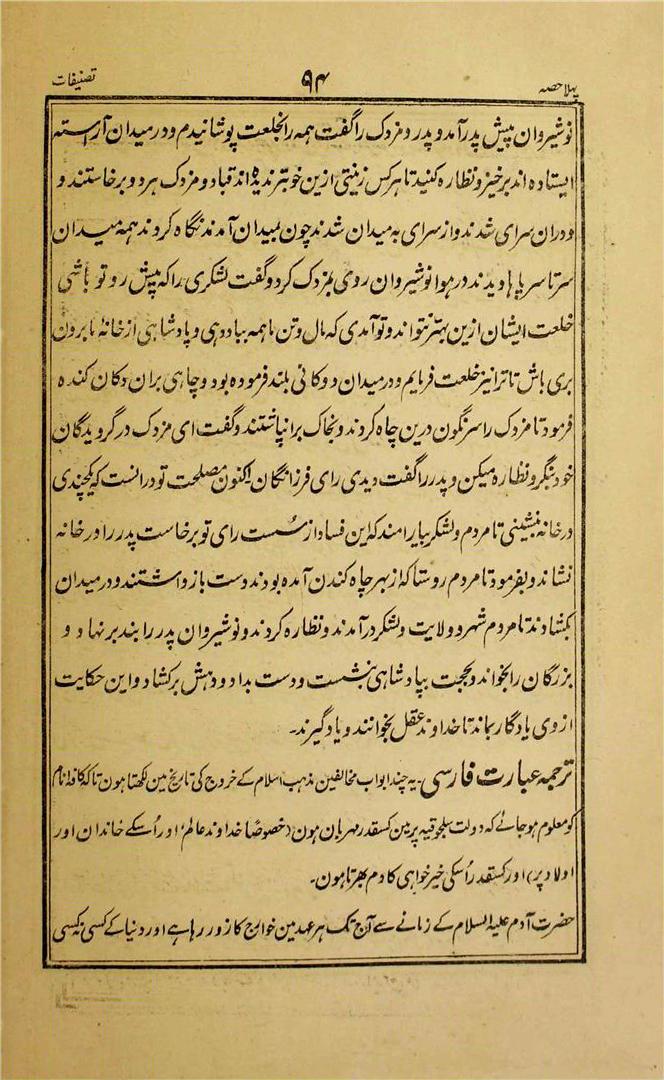 پہلا حصہ ۹۴ تصنیفات
نوشیروان پیش پدر آمد و پدر و مزدک را گفت ہمہ را بخلعت پوشانیدم و در میدان آراستہ
ایستادہ اند برخیز و نظارہ کنید تا ہرکس زینتی ازین خوبتر ندیدہ اند قباد و مزدک ہر دو برخاستند و
ودران سرای شدند و از سرای بہ میدان شدند چون بمیدان آمدند نگاہ کردند ہمہ میدان
سر تا سر پاہا دیدند در ہوا نوشیروان روی بمزدک کرد و گفت لشکری را کہ پیش رو تو باشی
خلعت ایشان ازین بہتر نتواند و تو آمدی کہ مال و تن ما ہمہ بباد دہی و پادشاہی از خانۂ ما برون
بری باش تا ترا نیز خلعت فرمایم و در میدان دوکانی بلند فرمودہ بود و چاہی بران دکان کندہ
فرمود تا مزدک را سرنگون درین چاہ کردند و بخاک برانپاشتند و گفت ای مزدک در گرویدگان
خود بنگر و نظارہ میکن و پدر را گفت دیدی رای فرزانگان اکنون مصلحت تو در انست کہ یکچندی
در خانہ بنشینی تا مردم و لشکر بیارامند کہ این فساد از سُست رای تو برخاست پدر را در خانہ
نشاند و بفرمود تا مردم روستا کہ از بہر چاہ کندن آمدہ بودند دست باز داشتند و در میدان
بکشادند تا مردم شہر و ولایت و لشکر در آمدند و نظارہ کردند و نوشیروان پدر را بند بر نہاد و
بزرگان را بخواند و بحجت بپادشاہی بنشست و دست بداد و دہش برکشاد و این حکایت
از وی یادگار بماند تا خداوند عقل بخوانند و یاد گیرند۔
ترجمہ عبارت فارسی۔ یہ چند ابواب مخالفین مذہب اسلام کے خروج کی تاریخ مین لکھتا ہون تاکہ کافۂ انام
کو معلوم ہو جائے کہ دولت سلجوقیہ پر مین کسقدر مہربان ہون (خصوصًا خداوند عالم، اور اُسکے خاندان اور
اولاد پر) اور کسقدر اُسکی خیر خواہی کا دم بھرتا ہون۔
حضرت آدم علیہ السلام کے زمانے سے آج تک ہر عہد مین خوارج کا زور رہا ہے اور دنیا کے کسی نہ کسی